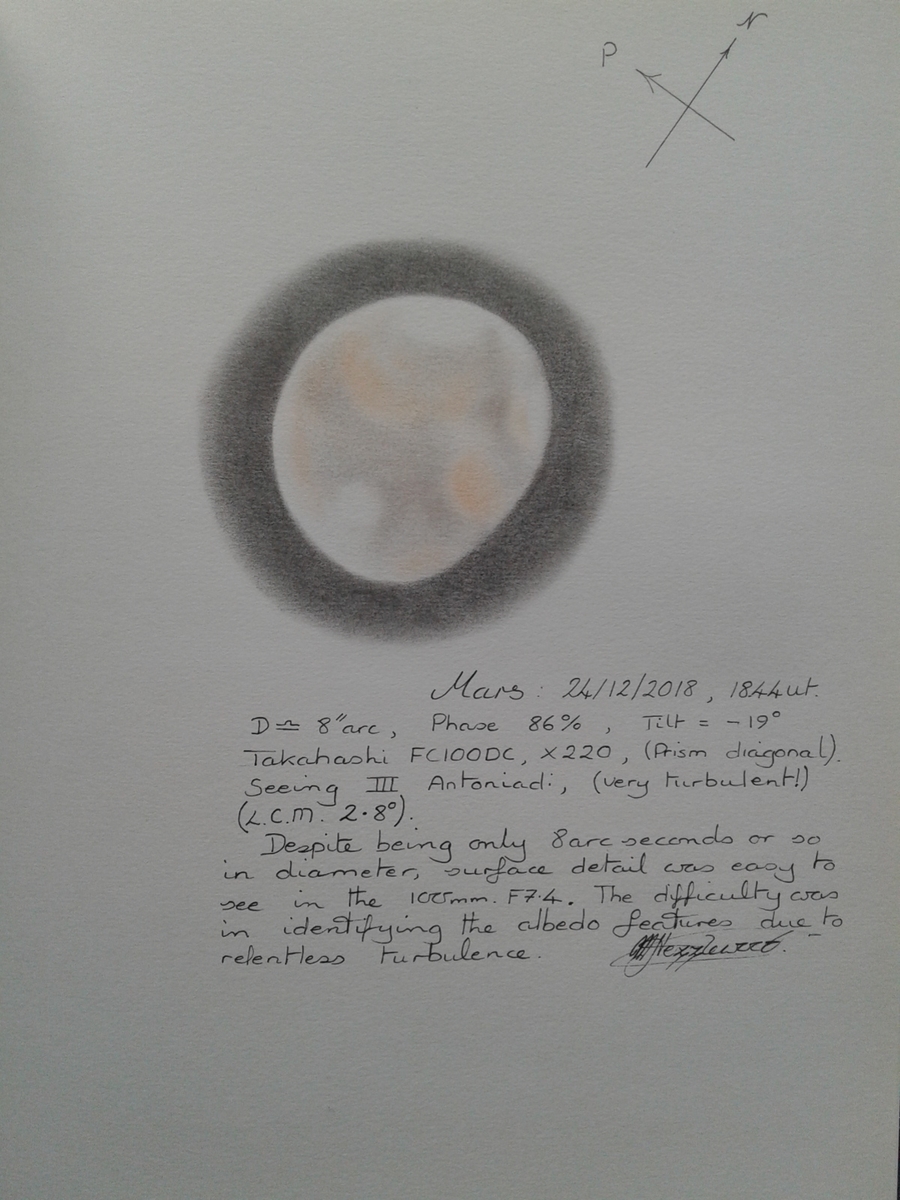 N
P
Mars: 24/12/2018, 1844ut.
D ≃ 8"arc, Phase 86%, Tilt = -19°
Takahashi FC100DC, x220, (Prism diagonal).
Seeing III Antoniadi, (very turbulent!)
(L.C.M. 2.8°).
Despite being only 8arc seconds or so
in diameter, surface detail was easy to
see in the 100mm. F7.4. The difficulty was
in identifying the albedo features due to
relentless turbulence.